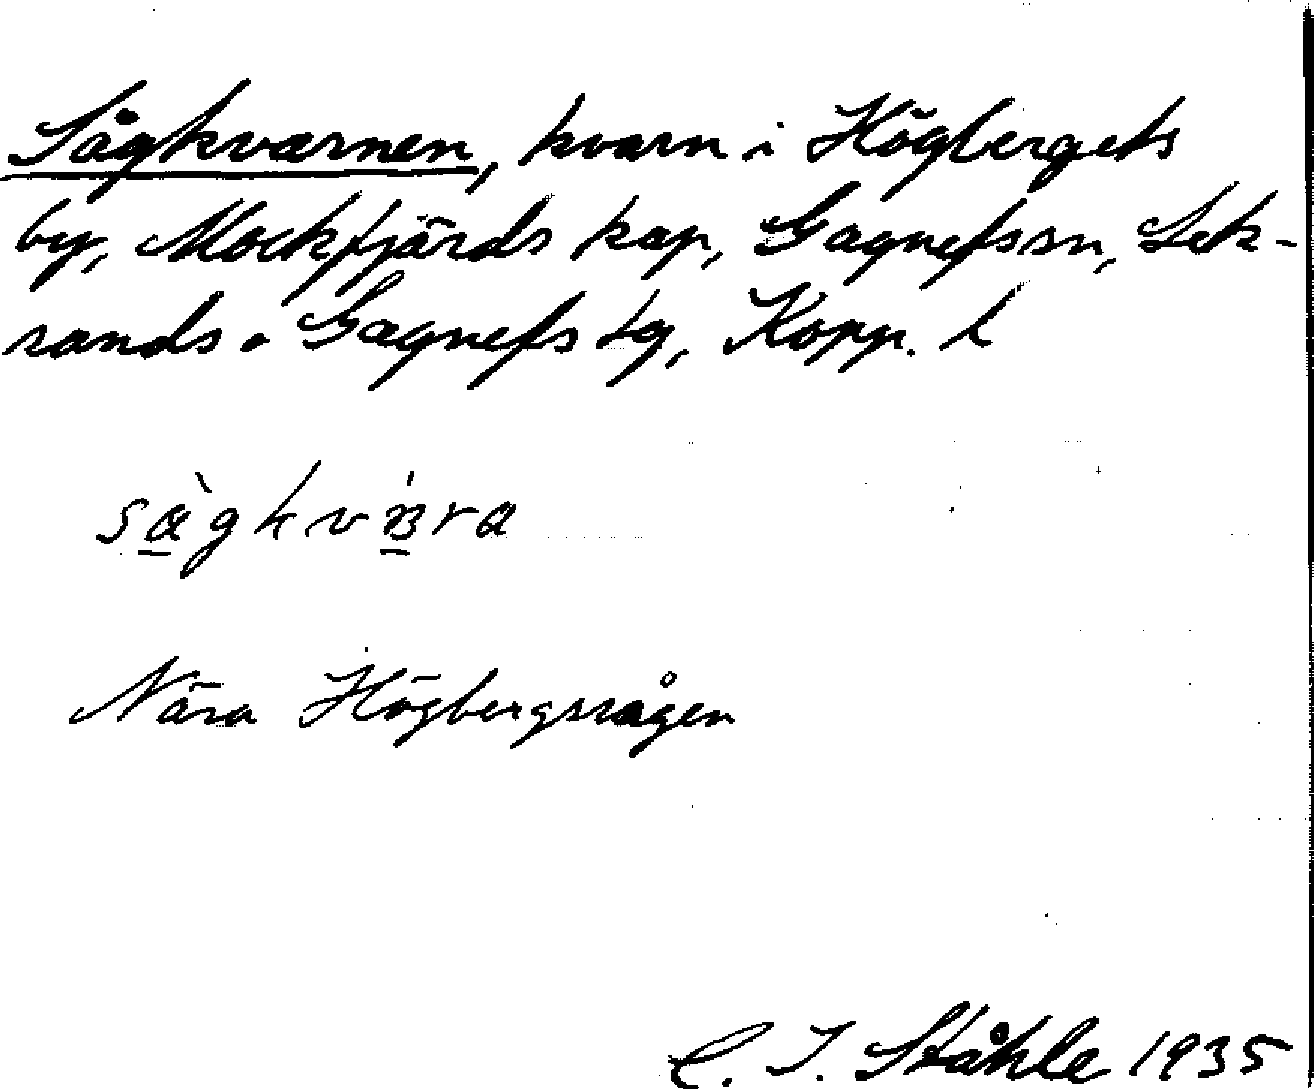 Sågkvarnen, kvarn i Högbergets
by, Mockfjärds kap, Gagnefs sn, Lek-
sands o Gagnefs tg, Kopp. l
Nära Högbergssågen
C. I. Ståhle 1935